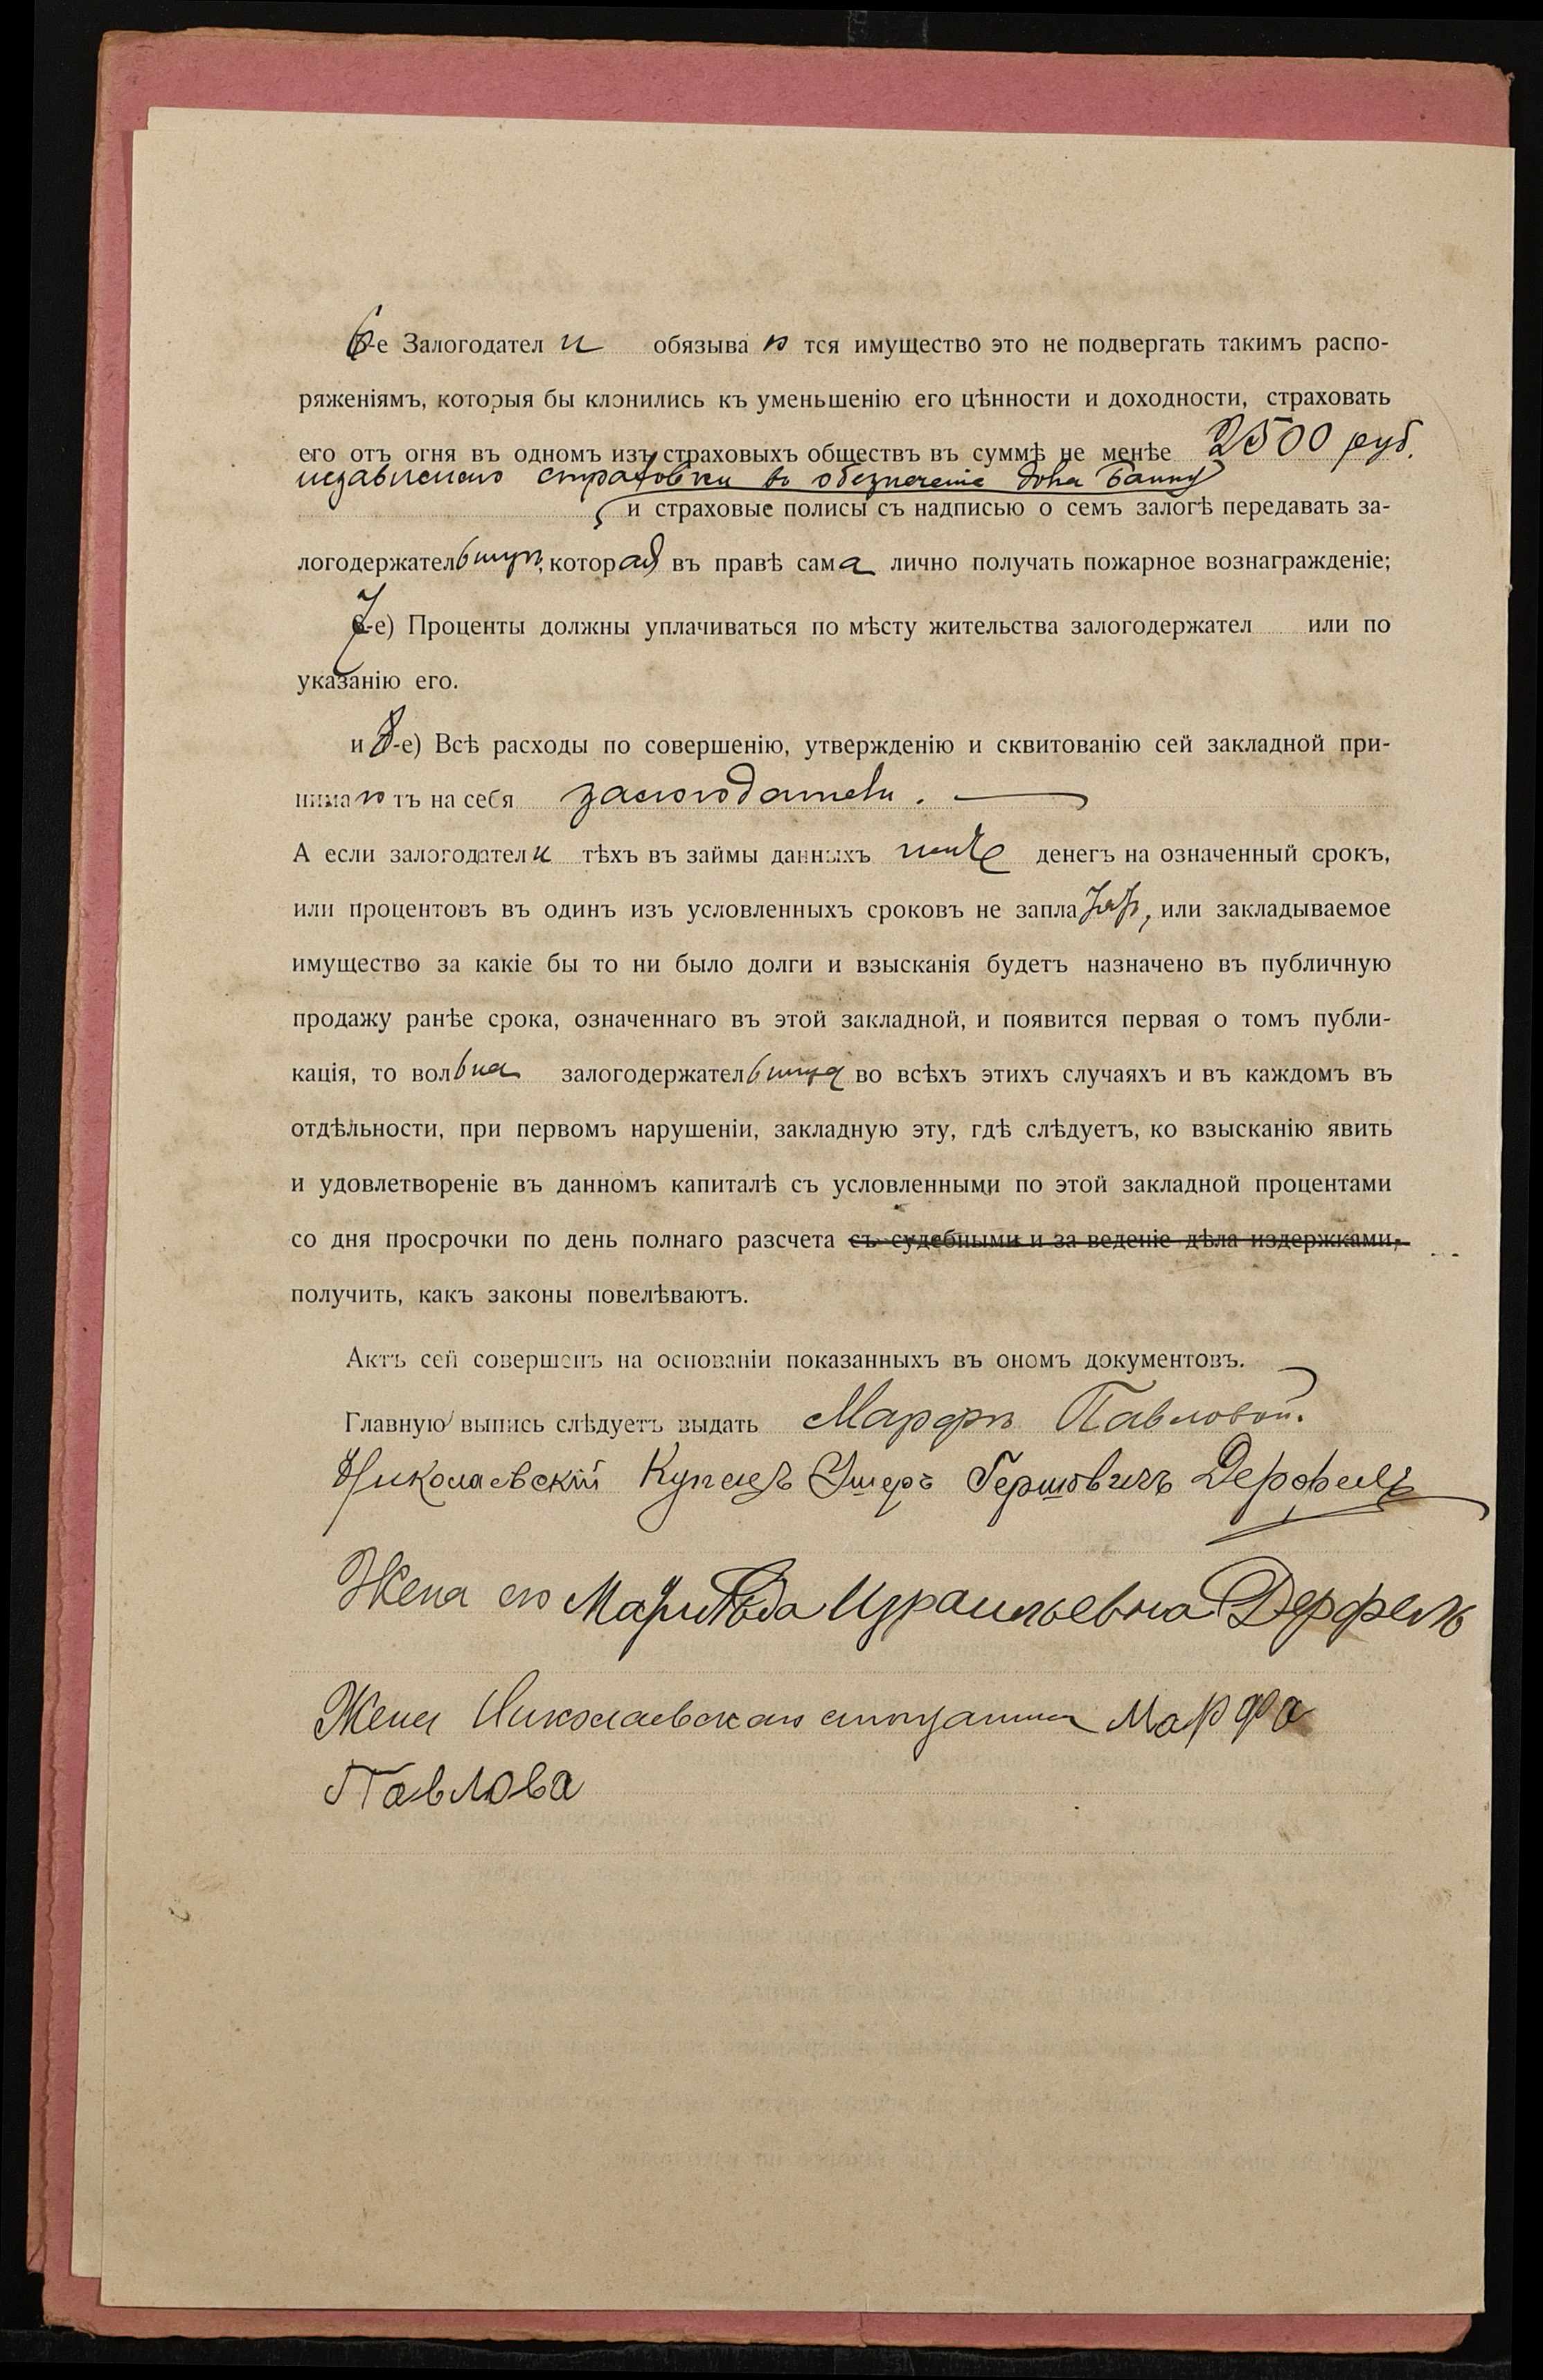 6-е Залогодатели обязываются имущество это не подвергать такимъ распо-
ряженіямъ, которыя бы клонились къ уменьшенію его цѣнности и доходности, страховать
его отъ огня въ одномъ изъ страховыхъ обществъ въ суммѣ не менѣе 2500 руб.
независимо страховки въ обезпеченіе долга Банку
и страховые полисы съ надписью о семъ залогѣ передавать за-
логодержательницѣ, которая въ правѣ сама лично получать пожарное вознагражденіе;
7-е) Проценты должны уплачиваться по мѣсту жительства залогодержател или по
указанію его.
и 8-е) Всѣ расходы по совершенію, утвержденію и сквитованію сей закладной при-
нимаютъ на себя залогодатели.
А если залогодатели тѣхъ въ займы данныхъ денегъ на означенный срокъ,
или процентовъ въ одинъ изъ условленныхъ сроковъ не запла или закладываемое
имущество за какіе бы то ни было долги и взысканія будетъ назначено въ публичную
продажу ранѣе срока, означеннаго въ этой закладной, и появится первая о томъ публи-
кація, то вольна залогодержательница во всѣхъ этихъ случаяхъ и въ каждомъ въ
отдѣльности, при первомъ нарушеніи, закладную эту, гдѣ слѣдуетъ, ко взысканію явить
и удовлетвореніе въ данномъ капиталѣ съ условленными по этой закладной процентами
со дня просрочки по день полнаго разсчета съ судебными и за веденіе дѣла издержками,
получить, какъ законы повелѣваютъ.
Актъ сей совершенъ на основаніи показанныхъ въ ономъ документовъ.
Главную выпись слѣдуетъ выдать Марфѣ Павловой.
Николаевскій Купецъ Ушеръ Гершовичъ Дерфель
Жена его Израильевна Дерфель
Жена Николаевскаго мещанина Марфа
Павлова